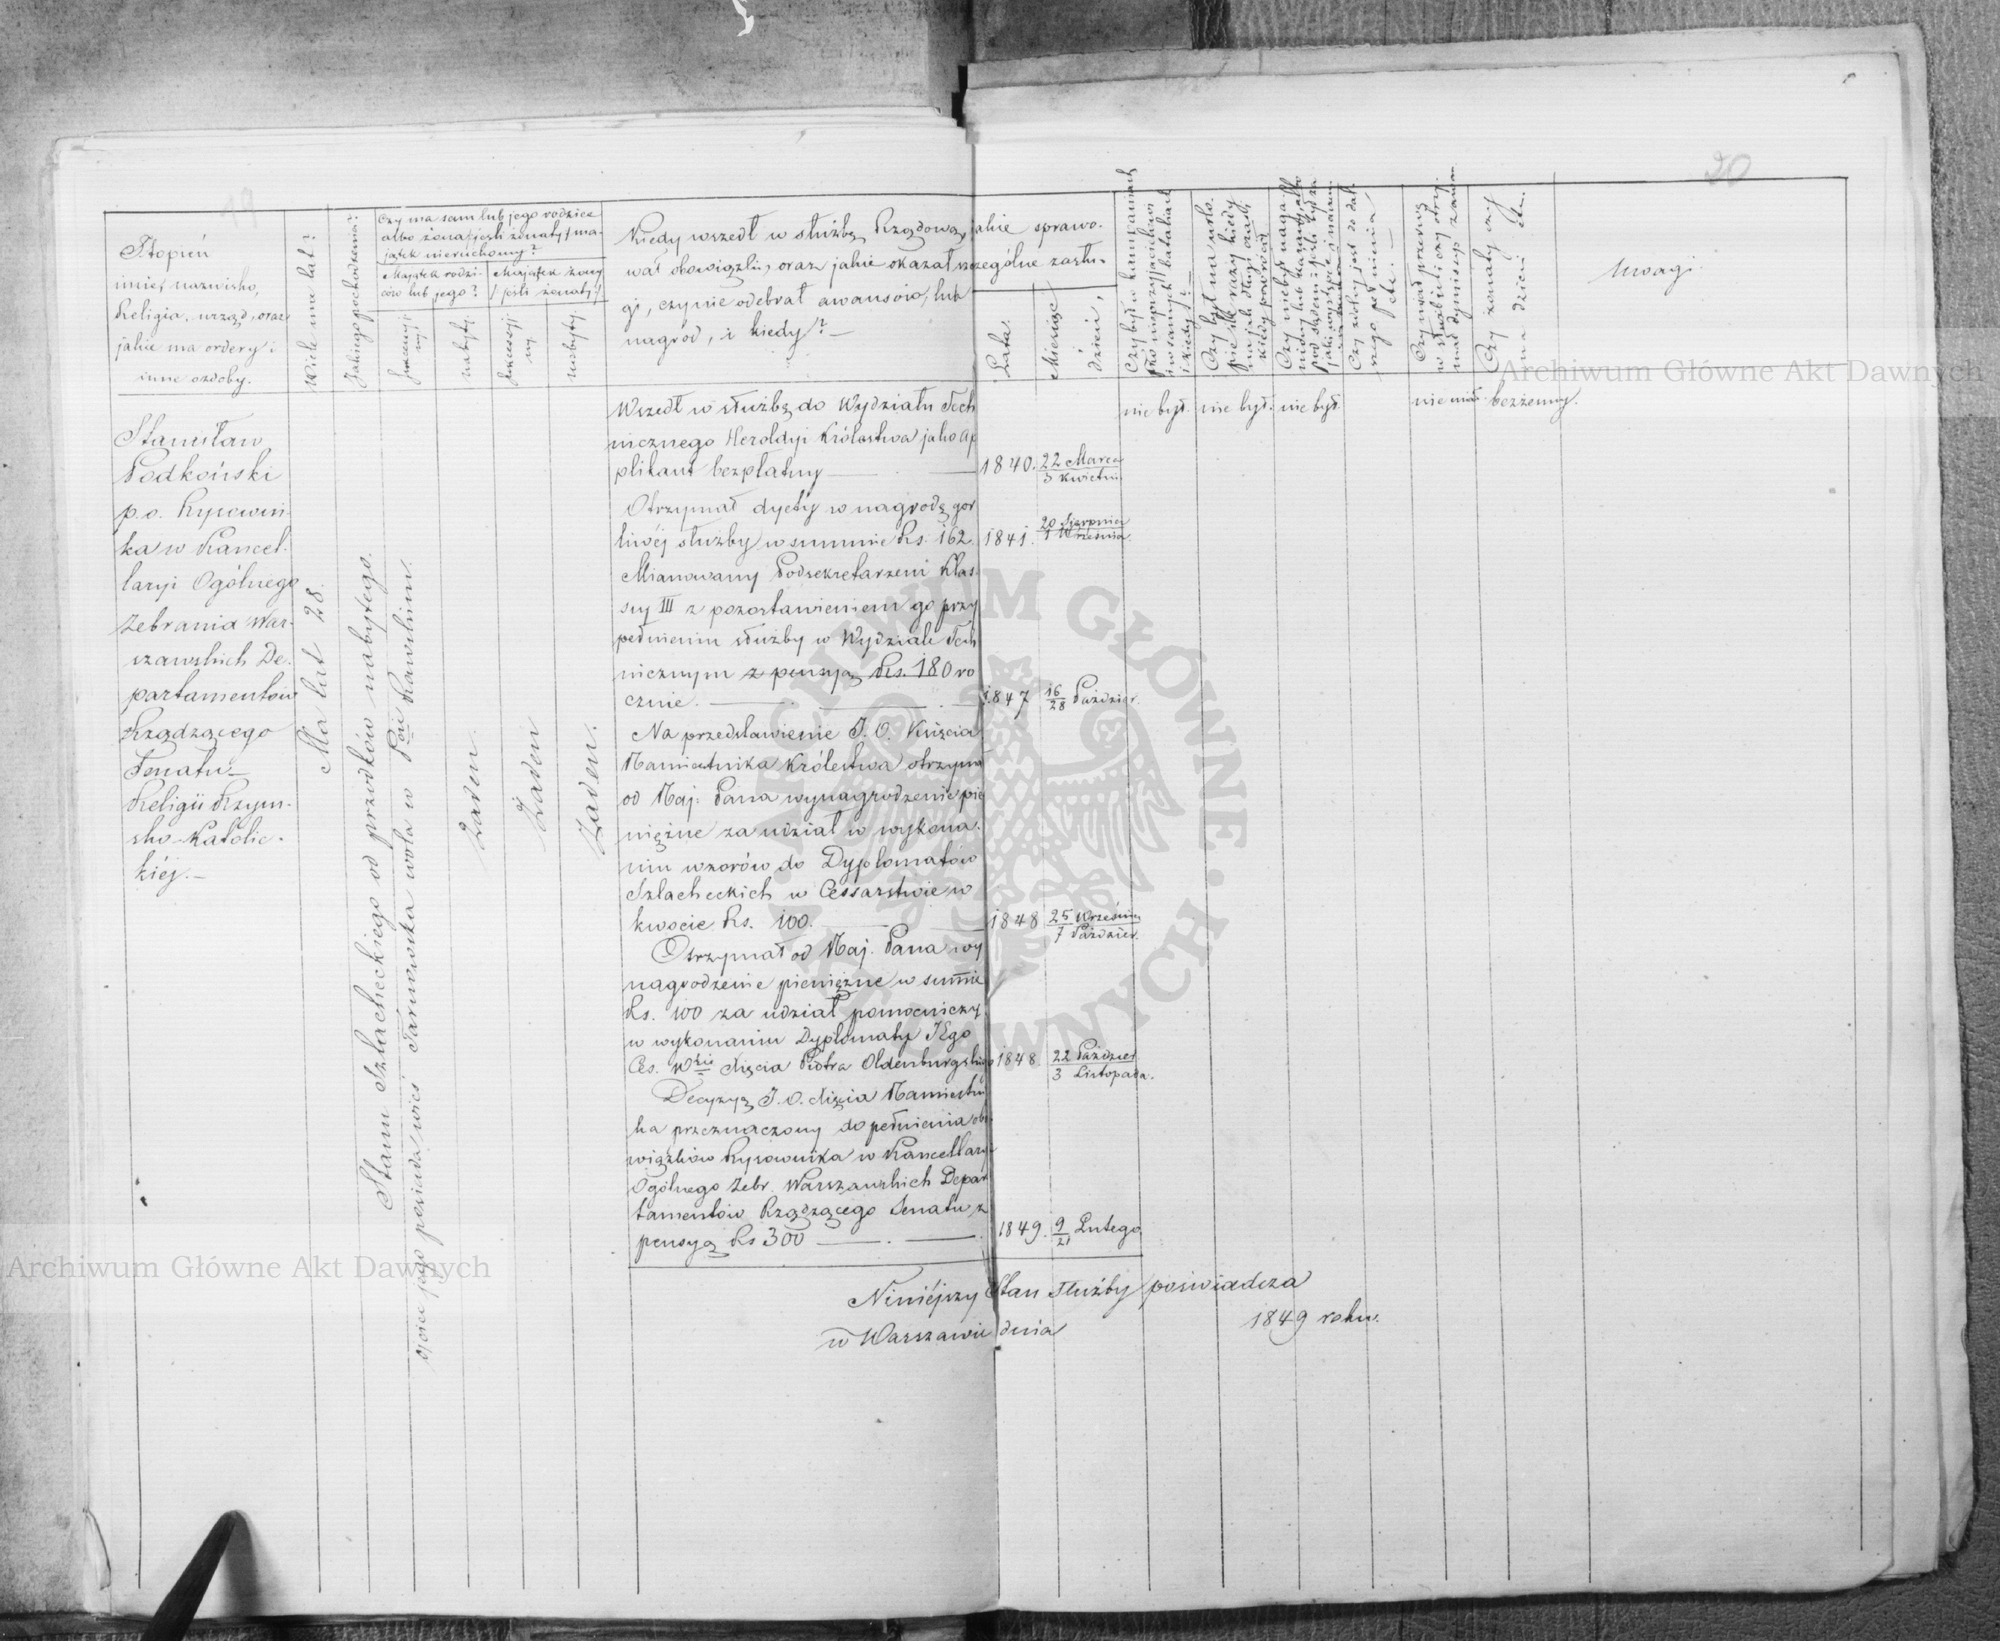 19
20
Stopień
imie, nazwisko,
Religia, urząd, oraz
jakie ma ordery i
inne ozdoby.
Wiele ma lat?
Jakiego pochodzenia?
Czy ma sam lub jego rodzice
albo żona /jeśli żonaty/ ma-
jątek nieruchomy?
Majątek rodzi-
ców lub jego?
Majątek żony
/jeśli żonaty/
sukcessyj-
ny.
nabyty.
sukcessyj-
ny.
nabyty.
Kiedy wszedł w służbę Rządową, jakie sprawo-
wał obowiązki, oraz jakie okazał szczególne zasłu-
gi, czynie odebrał awansów, lub
nagród, i kiedy? —
Lata.
Miesiąc
i
dzień,
Czy był w kampaniach
i kiedy?
Czy był na urlo-
pie, ile razy, kiedy
na jak długi czas,
kiedy powrócił
Czy zdolny jest do dal-
szego pełnienia
etc: —
Czy miał przerwę
w służbie
Czy żonaty czy
ma dzieci etc.
Uwagi
Stanisław
Podkoński
p.o. Rysowni-
ka w Kancel-
laryi Ogólnego
Zebrania War-
szawskich De-
partamentów
Rządzącego
Senatu —
Religii Rzym-
sko-Katolic-
kiéj. —
Ma lat 28.
Stanu Szlacheckiego od przodków nabytego.
ojciec jego posiada wieś Tarnowska wola w Pcie Rawskim.
Żaden.
Żaden
Żaden.
Wszedł w służbę do Wydziału Tech
nicznego Heroldyi Królestwa jako Ap
plikant bezpłatny — —
1840. 22 Marca
3 Kwietnia
Otrzymał dyety w nagrodę gor
liwéj służby w summie Rs. 162.
1841. 20 Sierpnia
1 Września.
Mianowany Podsekretarzem Klas-
sy III z pozostawieniem go przy
pełnieniu służby w Wydziale Tech
nicznym z pensyą Rs. 180 ro
cznie. — —
1847 16
28 Paździer.
Na przedstawienie J. O. Księcia
Namiestnika Królestwa otrzymał
od Naj: Pana wynagrodzenie pie
niężne za udział w wykona-
niu wzorów do Dyplomatów
Szlacheckich w Cessarstwie w
kwocie Rs. 100. — —
1848 25 Września
7 Paździer.
Otrzymał od Naj. Pana wy
nagrodzenie pieniężne w summie
Rs. 100 za udział pomocniczy
w wykonaniu Dyplomaty JEgo
Ces. Wści Xięcia Piotra Oldenburgskiego
1848. 22 Paździer
3 Listopada.
Decyzyą J. O. Xięcia Namiestni
ka przeznaczony do pełnienia obo
wiązków Rysownika w Kancellaryi
Ogólnego Zebr. Warszawskich Depar
tamentów Rządzącego Senatu, z
pensyą Rs 300 — . —
1849. 9
21 Lutego
nie był.
nie był.
nie był.
nie miał.
bezżenny.
Niniéjszy Stan Służby poświadcza
w Warszawie dnia 1849 roku.
ARCHIWUM GŁÓWNE AKT DAWNYCH
Archiwum Główne Akt Dawnych
Archiwum Główne Akt Dawnych